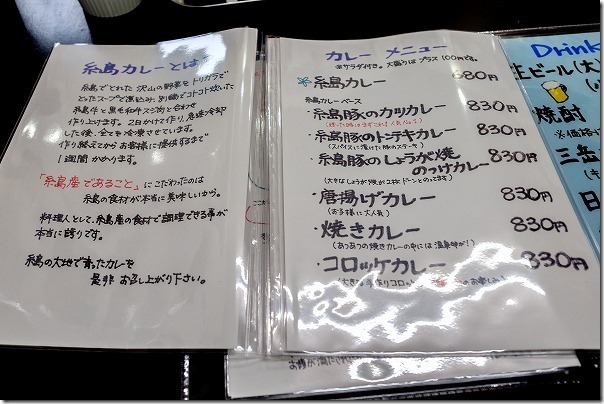 糸島カレーとは
糸島でとれた沢山の野菜をトリガラで
とったスープで煮込み、別鍋でコトコト炊いた
糸島牛と黒毛和牛スジ肉と合わせ
作り上げます。2日かけて作り、急速冷却
した後、全てを冷凍させています。
作り終えてからお客様に提供するまで
1週間かかります。
「糸島産であること」にこだわったのは
糸島の食材が本当に美味しいから。
料理人として、糸島産の食材で調理できる事が
本当に誇りです。
糸島の大地で育ったカレーを
是非お召し上がり下さい。
カレーメニュー
※サラダ付き。大盛りはプラス100円です。
糸島カレー 680円
糸島カレーベース
・糸島豚のカツカレー 830円
・糸島豚のトンテキカレー 830円
(スパイスに漬けた豚のステーキ)
・糸島豚のしょうが焼
のっけカレー 830円
(大きなしょうが焼が2枚ドーンとのってます)
・唐揚げカレー 830円
(お子様に大人気)
・焼きカレー 830円
(あつあつの焼きカレーの中には温泉卵が!)
・コロッケカレー 830円
Drink
生ビール(大)
焼酎
三岳